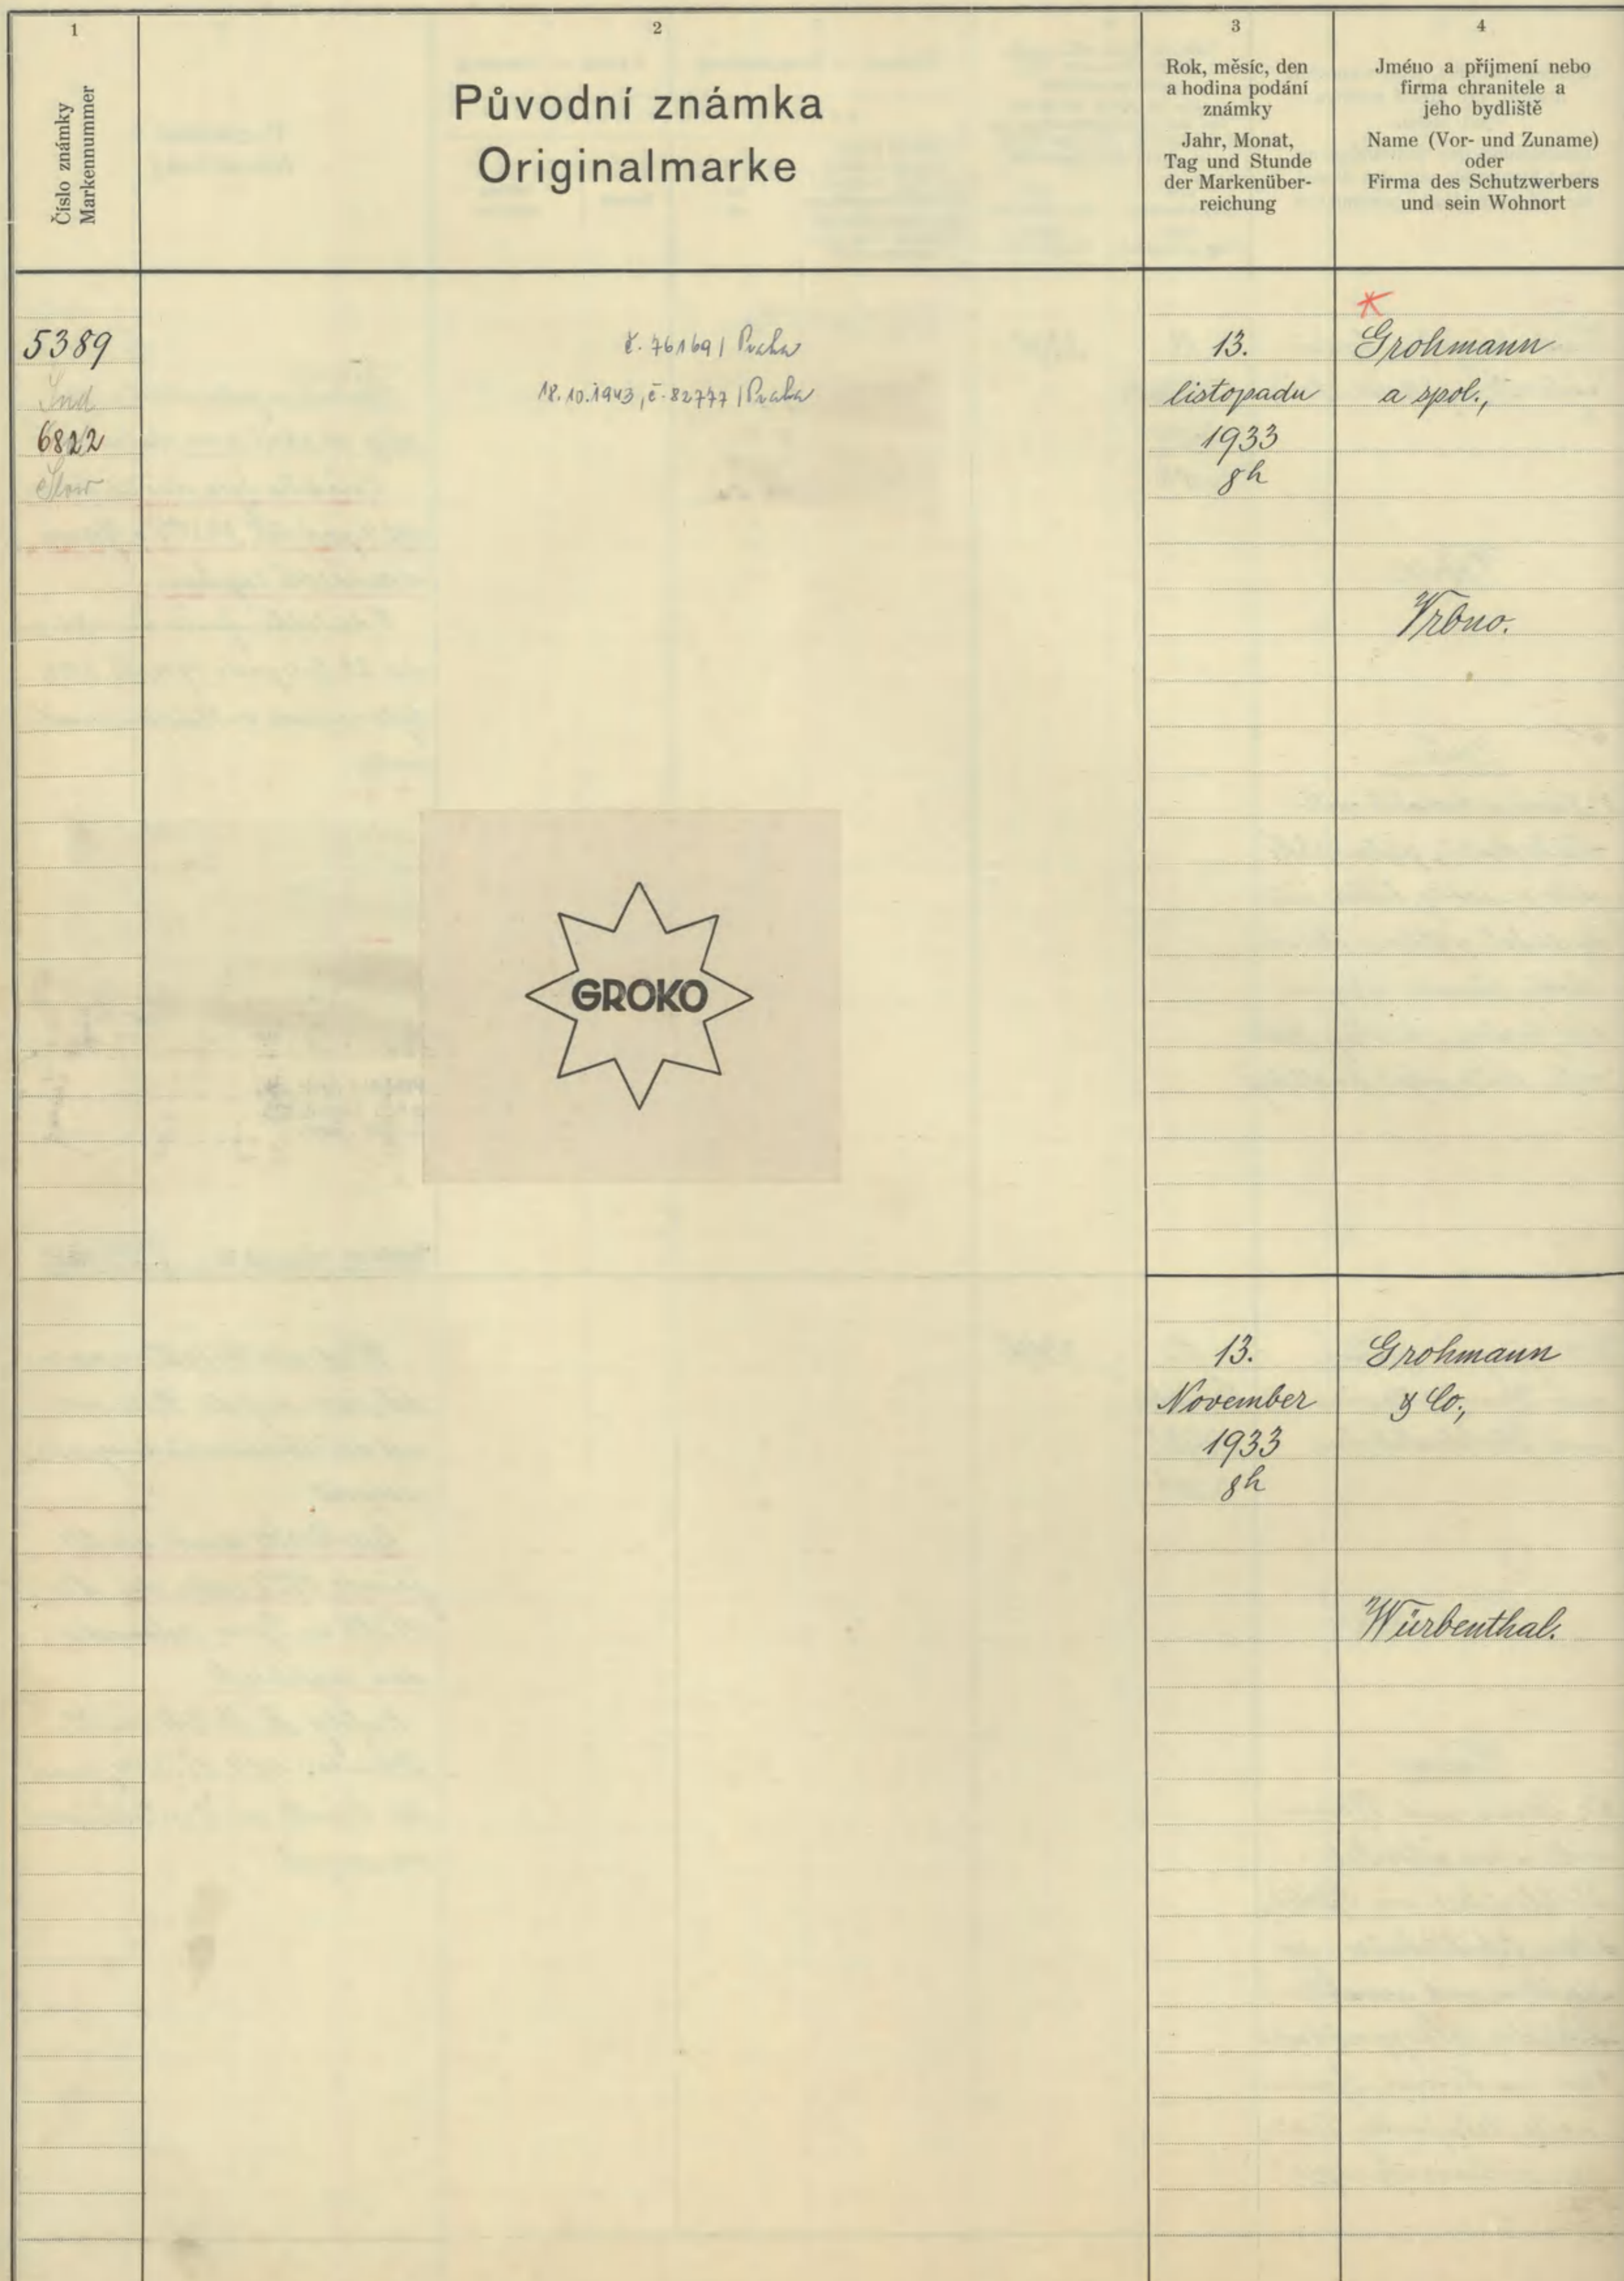 1
Číslo známky
Markennummer
2
Původní známka
Originalmarke
3
Rok, měsíc, den
a hodina podání
známky
Jahr, Monat,
Tag und Stunde
der Markenüber-
reichung
4
Jméno a příjmení nebo
firma chranitele a
jeho bydliště
Name (Vor- und Zuname)
oder
Firma des Schutzwerbers
und sein Wohnort
5389
Ind
6822
Slow
č. 76169 / Praha
18.10.1943, č. 82777 / Praha
13.
listopadu
1933
8h
Grohmann
a spol.,
Vrbno.
GROKO
13.
November
1933
8h
Grohmann
& Co.,
Würbenthal.